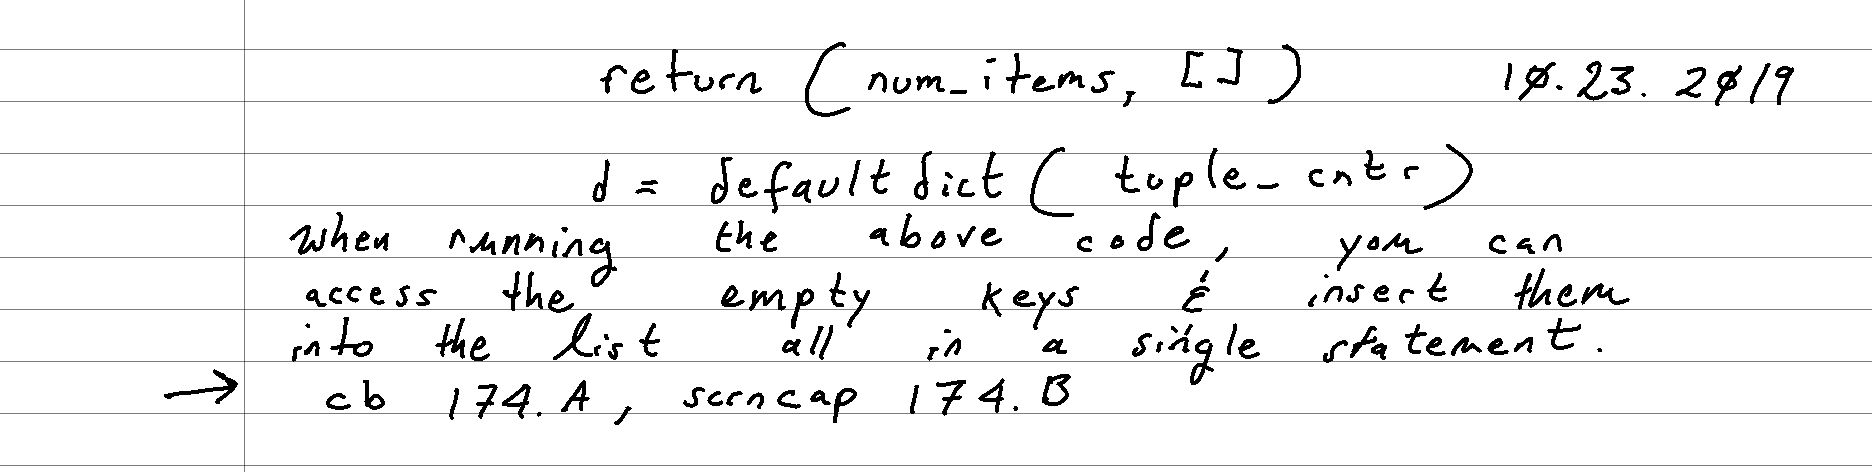 return (num_items, []) 10.23.2019
d = defaultdict( tuple_cntr)
when running the above code, you can
access the empty keys & insert them
into the list all in a single statement.
→ cb 174.A, scrncap 174.B